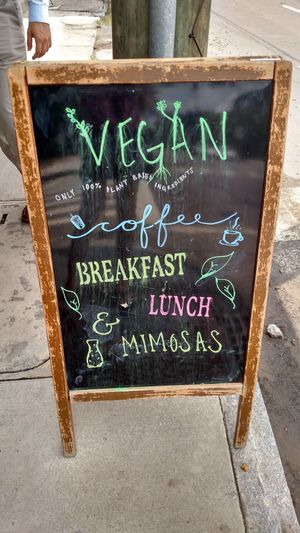 VEGAN
ONLY 100% PLANT BASED INGREDIENTS
coffee
BREAKFAST
LUNCH
& MIMOSAS